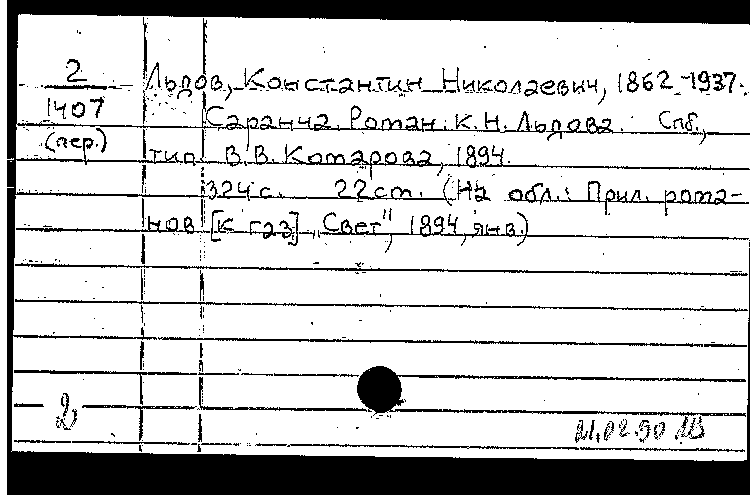 2
1407
(пер.)
Льдов, Константин Николаевич, 1862-1937.
Саранча. Роман. К.Н. Льдова. Спб.,
тип. В.В. Комарова, 1894.
324 с. 22 см. (На обл.: Прил. рома-
нов [к газ] „Свет", 1894, янв.)
2
21.02.90